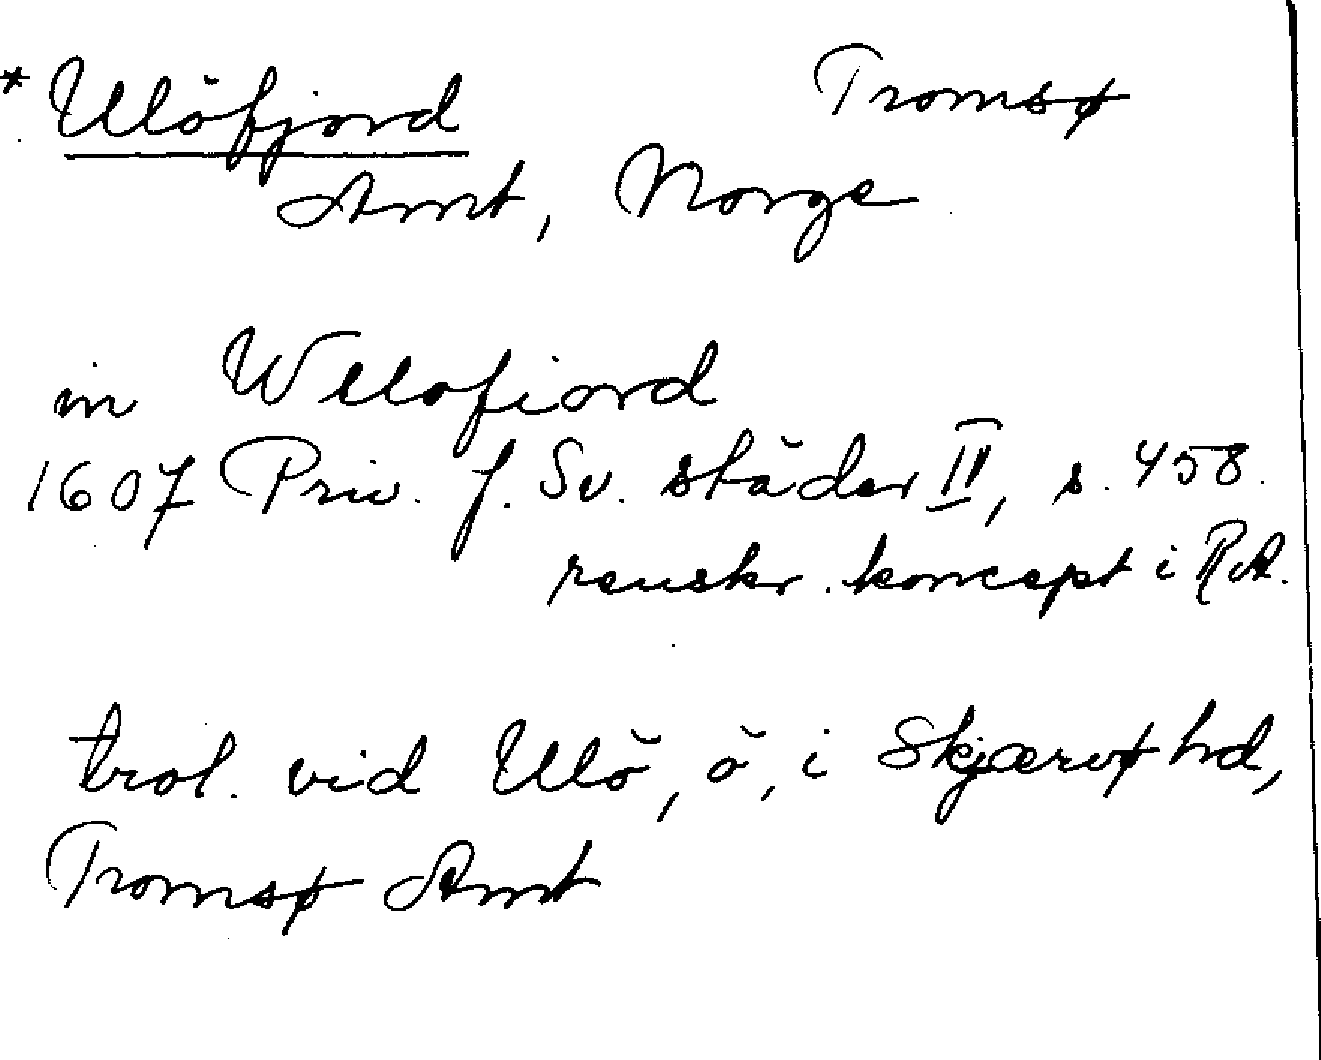 * Ulöfjord Tromsø
Amt, Norge
in Wlofiord
1607 Priv. f. Sv. städer II, s. 458.
renskr. koncept i RA.
trol. vid Ulö, ö, i Skjærvø hd,
Tromsø Amt